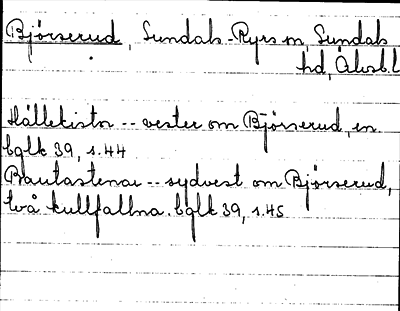 Björserud, Sundals-Ryrs sn, Sundals
hd, Älvsb.l
Hällekistor -- vester om Björserud, en
bglk 39, s.44
Bautastenar -- sydvest om Björserud,
två kullfallna. bglk 39, s.45